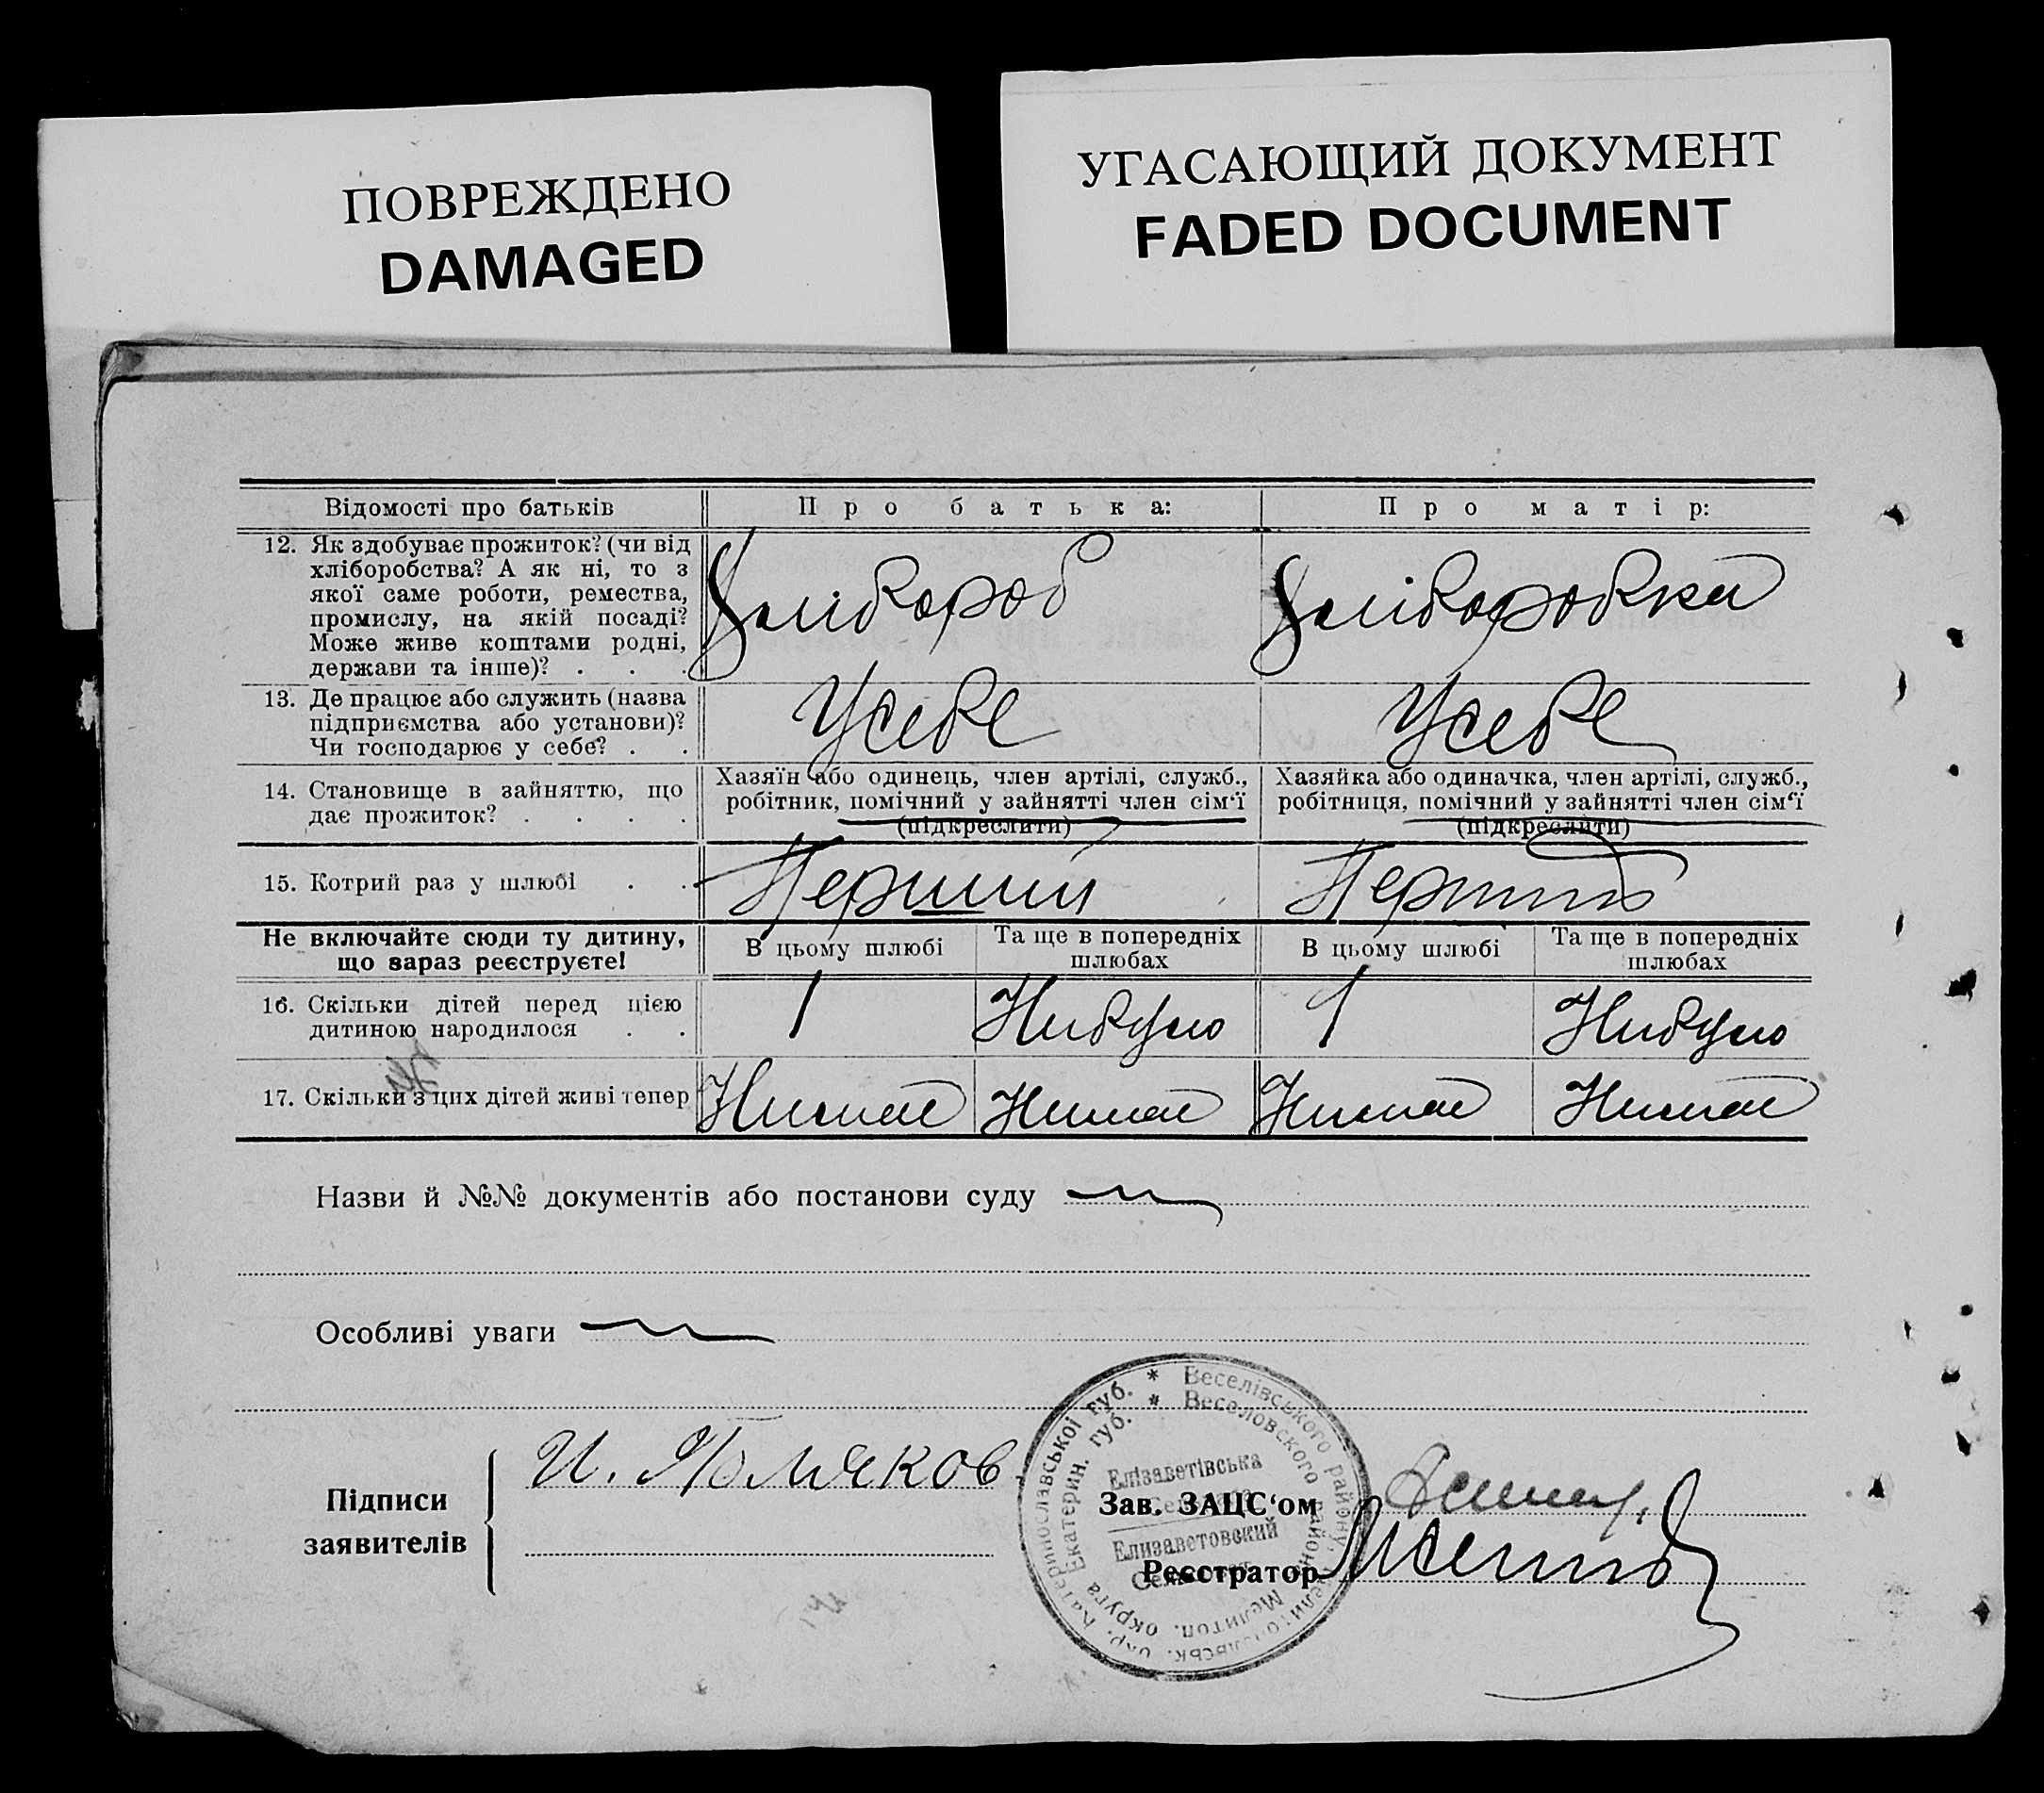 ПОВРЕЖДЕНО
DAMAGED
УГАСАЮЩИЙ ДОКУМЕНТ
FADED DOCUMENT
Відомості про батьків
Про батька:
Про матір:
12. Як здобуває прожиток? (чи від
хліборобства? А як ні, то з
якої саме роботи, ремества,
промислу, на якій посаді?
Може живе коштами родні,
держави та інше)? . . .
Хлібороб
Хліборобка
13. Де працює або служить (назва
підприємства або установи)?
Чи господарює у себе? . .
Усебе
Усебе
14. Становище в зайняттю, що
дає прожиток? . . . .
Хазяїн або одинець, член артілі, служб.,
робітник, помічний у зайнятті член сім'ї
(підкреслити)
Хазяйка або одиначка, член артілі, служб.,
робітниця, помічний у зайнятті член сім'ї
(підкреслити)
15. Котрий раз у шлюбі . .
Перший
Не включайте сюди ту дитину,
що зараз реєструєте!
В цьому шлюбі
Та ще в попередніх
шлюбах
В цьому шлюбі
Та ще в попередніх
шлюбах
16. Скільки дітей перед цією
дитиною народилося . .
1
Нибуло
1
Нибуло
17. Скільки з цих дітей живі тепер
Нимае
Нимае
Нимае
Нимае
Назви й №№ документів або постанови суду
Особливі уваги
Підписи
заявителів
И.
Зав. ЗАЦС'ом
Реєстратор
* Веселівського району, Мелітопільськ. окр. Катеринославської губ.
* Веселовского района Мелитоп. округа Екатерин. губ.
Елізаветівська
Елизаветовский